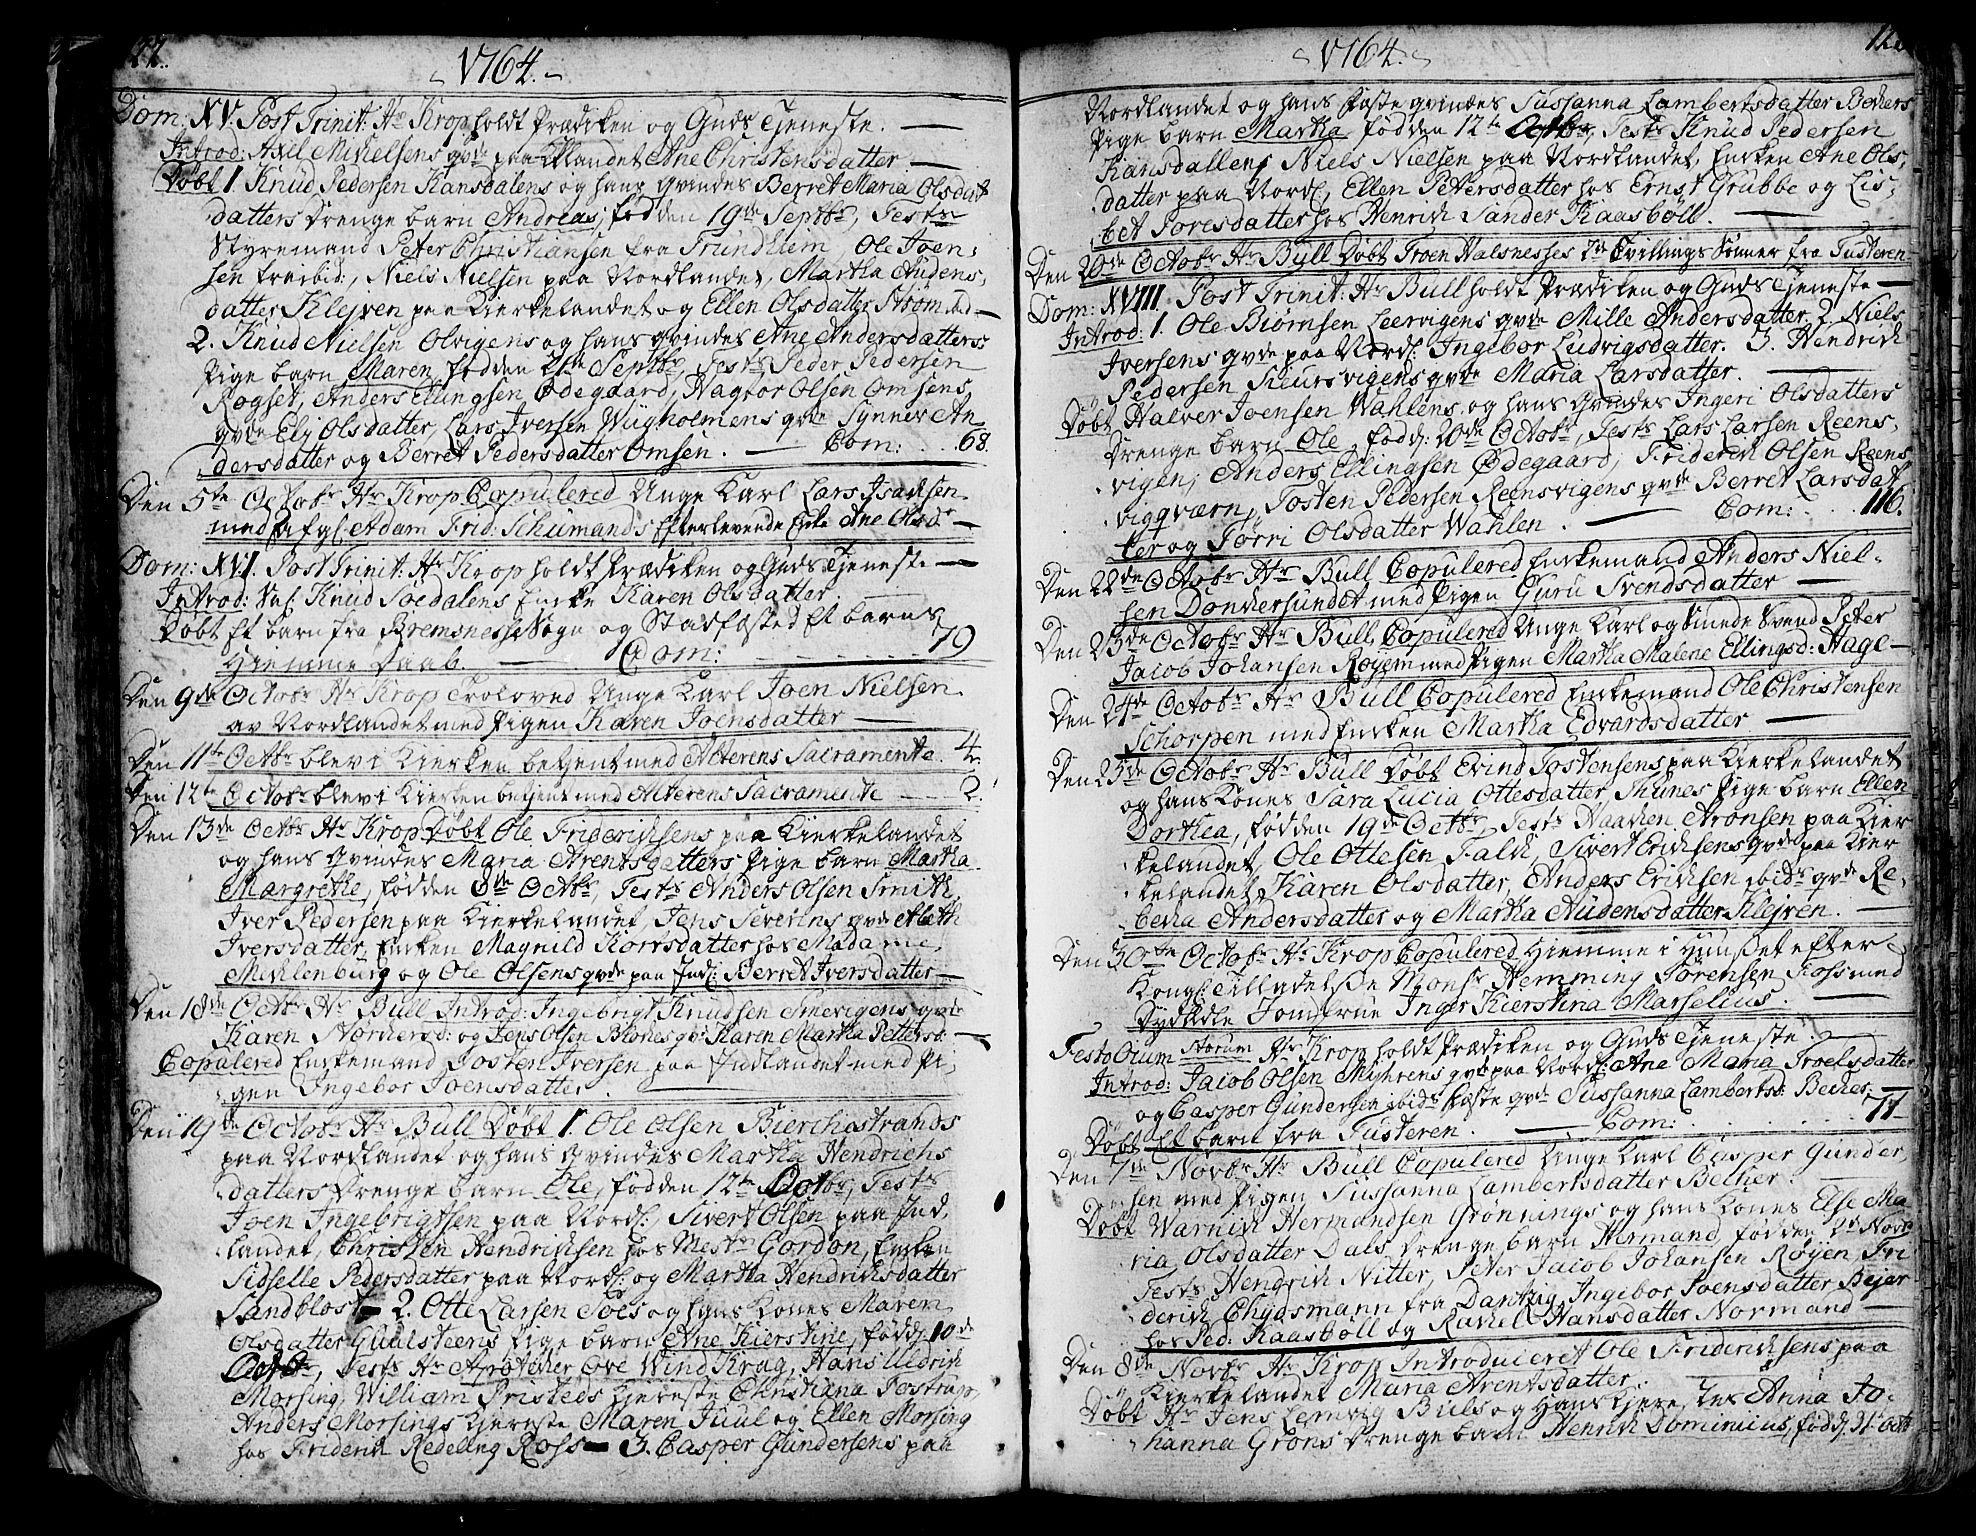 122.
1764.
Dom: XV. Post Trinit: Hr Krop holdt Prædiken og Guds Tjeneste.
Introd: Axel Mikelsens qvde paa Kl:landet Ane Christensdatter
Døbt 1 Knud Pedersen Hansdalens og hans Qvindes Berret Maria Olsdat
datters Drenge barn Andreas, fødden 19de Septbr, Tests
Styremand Peter Christiansen fra Trundhiem, Ole Joen,
sen trær ibid:, Niels Nielsen paa Nordlandet, Martha Audens,
datter Klejven paa Kierkelandet og Ellen Olsdatter Strøm
2. Knud Nielsen Olvigens og hans qvindes Ane Andersdatters
Pige barn Maren, fødden 21de Septbr, Tests Peder Pedersen
Rogset, Anders Ellingsen Ødegaard, Hagtor Olsen Omsens
qvde Elj Olsdatter, Lars Iversen Wiigholmens qvde Synnev An
dersdatter og Berret Pedersdatter Omsen. Com: 68.
Den 5te Octobr Hr Krop Copulered Unge Karl Lars Isachsen
med Afgl. Adam Frid: Schumands Efterlevende Enke Ane Olsdr
Dom: XVI. Post Trinit: Hr Krop holdt Prædiken og Guds Tjeneste
Introd: Sal. Knud Soedalens Encke Karen Olsdatter.
Døbt Et barn fra Bremsness Sogn og Stadfæsted Et barns
Hiemme Daab. Com: 79
Den 9de Octobr Hr Krop Troloved Unge Karl Joen Nielsen
av Nordlandet med Pigen Karen Joensdatter
Den 11te Octbr blev i Kierken betjent med Alterens Sacramente. 4.
Den 12te Octobr blev i Kierken betjent med Alterens Sacramente 2.
Den 13de Octbr Hr Krop Døbt Ole Friderichsens paa Kierkelandet
og hans Qvindes Maria Arentsdatters Pige barn Martha
Margrethe, fødden 8de Octbr, Tests Anders Olsen Smith,
Iver Pedersen paa Kierkelandet, Jens Severins qvde Aleth
Iversdatter, Encken Magnild Korrsdatter hos Madame,
Mechlenburg og Ole Olsens qvde paa Indl: Berret Iversdatter
Den 18de Octbr Hr Bull Introd: Ingebrigt Knudsen Smevigens qvde
Karen Norherød: og Jens Olsen Biønes qv: Karen Martha Pettersd:
Copulered Enckemand Tosten Iversen paa Indlandet med Pi,
gen Ingebor Joensdatter.
Den 19de Octobr Hr Bull Døbt 1. Ole Olsen Bierchestrands
paa Nordlandet og hans Qvindes Martha Hendrichs
datters Drenge barn Ole, fødden 12te Octbr, Tests
Joen Ingebrigtsen paa Nordl: Sivert Olsen paa Ind,
landet, Christen Hendrichsen hos Mestr Gordon, Encken
Sidselle Pedersdatter paa Nordl: og Martha Hendrichsdatter
Sandblost 2. Otte Larsen Soes og hans Kones Maren
Olsdatter Guulsteens Pige barn Ane Kierstine, fødd: 10de
Octbr, Tests Hr Apotecher Ove Wind Krag, Hans Uldrich
Morsing, William Pristeds Kjereste Christiana Fostrup,
Anders Morsings Kjereste Maren Juul og Ellen Morsing
hos Friderich Redeling Ross 3. Casper Gundersens paa
1764.
123
Nordlandet og hans fæste qvindes Sussanna Lambertsdatter Bekers
Pige barn Martha fødden 12te Octbr, Tests Knud Pedersen
Hansdallens Niels Nielsen paa Nordlandet, Encken Ane Ols,
datter paa Nordl:, Ellen Petersdatter hos Ernst Grubbe og Lis,
bet Poresdatter hos Henrich Sander Kaasbøll.
Den 20de Octobr Hr Bull Døbt Troen Halsnesses 2de Tvillings Sønner fra Tusteren.
Dom: XVIII. Post Trinit: Hr Bull holdt Prædiken og Guds Tjeneste
Introd: 1. Ole Biørnsen Leervigens qvde Mille Andersdatter. 2. Niels
Iversens qvde paa Nordl: Ingebor Ludvigsdatter. 3. Hendrich
Pedersen Skeursvigens qvde Maria Larsdatter.
Døbt Halver Joensen Wahlens og hans Qvindes Ingeri Olsdatters
Drenge barn Ole, fødd: 20de Octobr, Tests Lars Larsen Reens,
vigen, Anders Ellingsen Ødegaard, Friderich Olsen Reens
vigqværn, Tosten Pedersen Reensvigens qvde Berret Larsdat
ter og Jørri Olsdatter Wahlen. Com: 116.
Den 22de Octobr Hr Bull Copulered Enckemand Anders Niel-
sen Donkersundet med Pigen Guru Svendsdatter
Den 23de Octobr Hr Bull Copulered Unge Karl og Smede Svend Peter
Jacob Johansen Røyem med Pigen Martha Malene Ellingsd: Hage
Den 24de Octobr Hr Bull Copulered Enckemand Ole Christensen
Schorpen med Encken Martha Edvardsdatter
Den 25de Octobr Hr Bull Døbt Evind Tostensens paa Kierkelandet
og hans Kones Sara Lucia Ottesdatter Thunes Pige barn Ellen
Dorthea, fødden 19de Octbr, Tests Haachen Aronsen paa Kier
kelandet, Ole Ottesen Falch, Sivert Erichsens qvde paa Kier
kelandet, Karen Olsdatter, Anders Erichsen ibids qvde Re,
becha Andersdatter og Martha Audensdatter Klejven.
Den 30te Octobr Hr Krop Copulered Hiemme i Huuset efter
Kongl: Tilladelsse Monsr Hemming Sørensen Ross med
Dydædle Jomfrue Inger Kierstina Marselius.
Festo Omm Storum Hr Krop holdt Prædiken og Guds Tjeneste.
Introd: Jacob Olsen Myhrens qvde paa Nordl: Ane Maria Troelsdatter
og Casper Gundersen ibids fæste qvde Sussanna Lambertsd: Becher
Døbt Et barn fra Tusteren. Com: 77
Den 7de Novbr Hr Bull Copulered Unge Karl Casper Gunder,
sen med Pigen Sussanna Lambertsdatter Becher.
Døbt Warnich Hermandsen Grønnings og hans Kones Else Ma
ria Olsdatter Dals Drenge barn Hermand, fødden 2de Novbr
Tests Hendrich Nitter, Peter Jacob Johansen Røyen Fri
derich Chydsmann fra Dantzig, Ingebor Joensdatter Bejer
hos Ped: Kaasbøll og Rachel Hansdatter Normand
Den 8de Novbr Hr Krop Introduceret Ole Friderichsens paa
Kierkelandet Maria Arentsdatter.
Døbt Hr Jens Lemvig Buls og Hans Kjerestes Anna Jo-
hanna Grøns Drenge barn Henrich Dominicus, fødd: 21 Octb